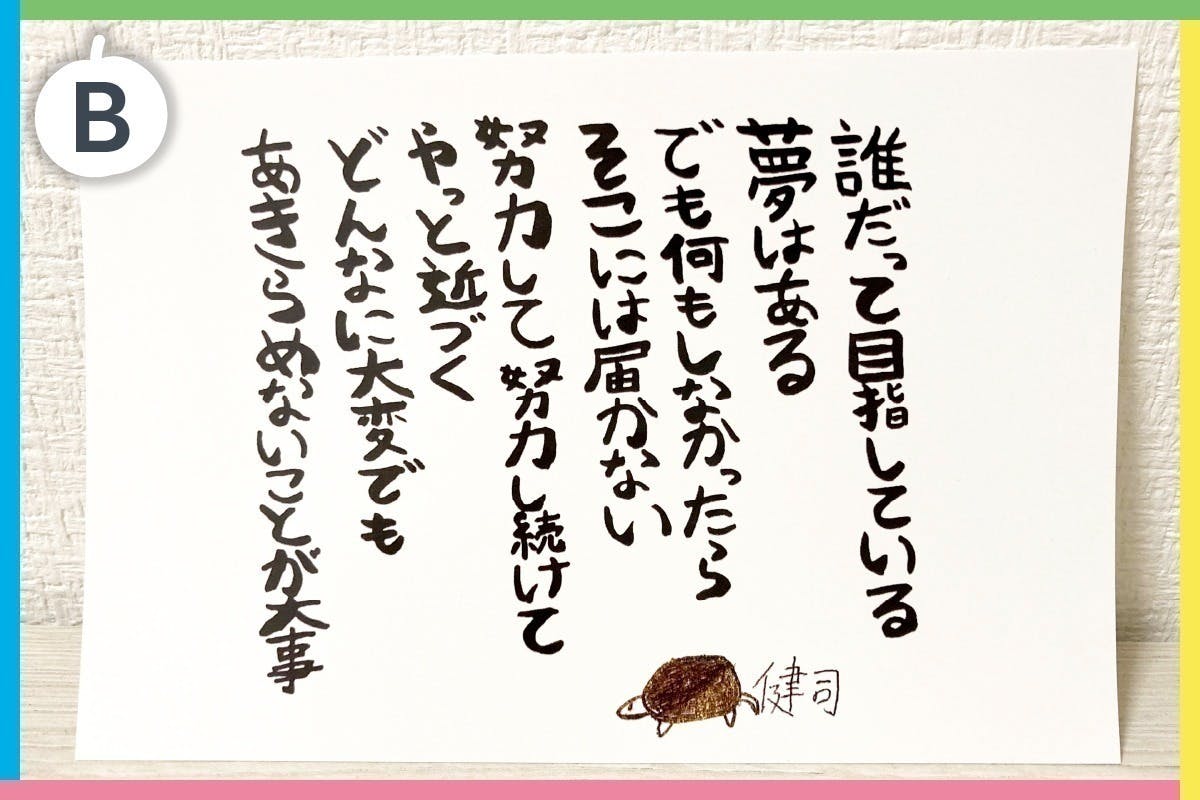 B
誰だって目指している
夢はある
でも何もしなかったら
そこには届かない
努力して努力し続けて
やっと近づく
どんなに大変でも
あきらめないことが大事
健司